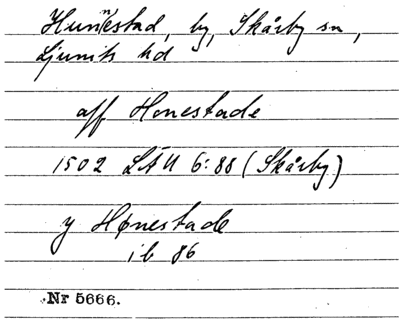 Hunnestad, by, Skårby sn,
Ljunits hd
aff Honestade
1502 LÄU 6:88 (Skårby)
y Hønestade
ib 86
Nr 5666.